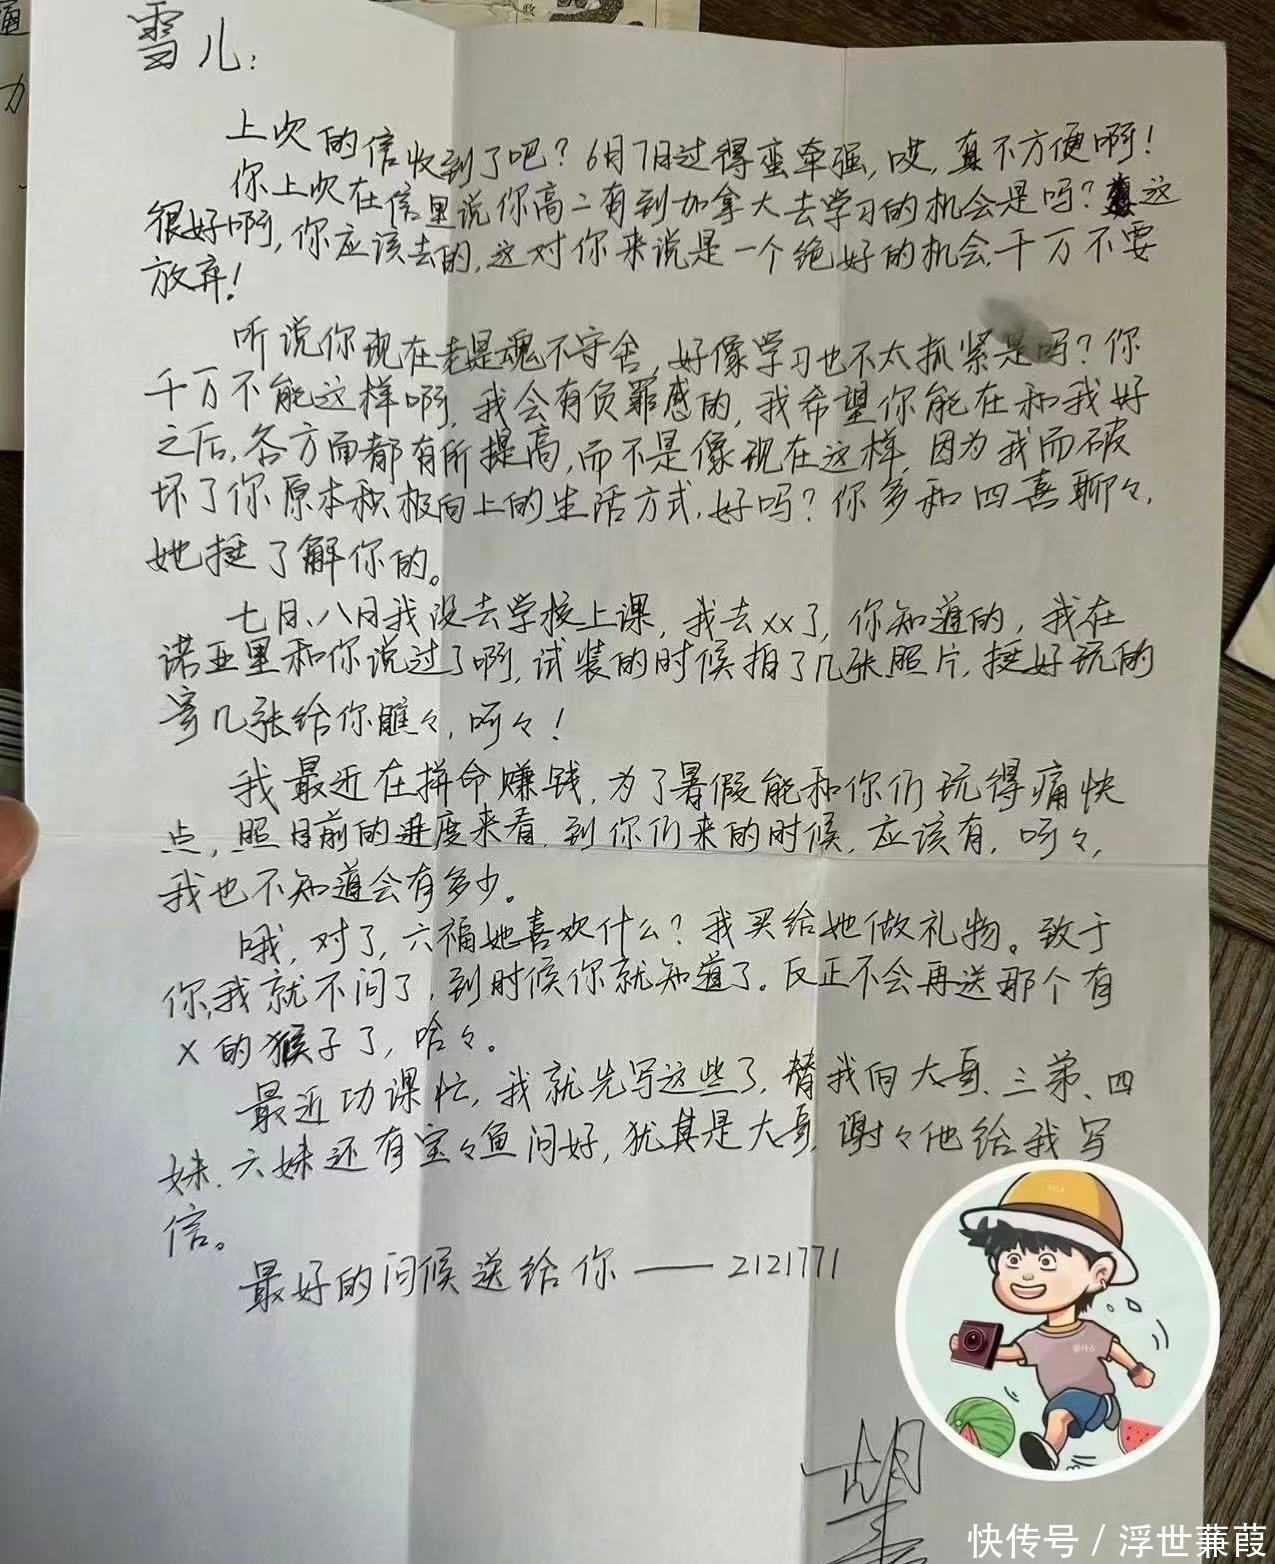 雪儿：
上次的信收到了吧？6月7日过得蛮牵强，哎，真不方便啊！
你上次在信里说你高二有到加拿大去学习的机会是吗？这
很好啊，你应该去的，这对你来说是一个绝好的机会，千万不要
放弃！
听说你现在老是魂不守舍，好像学习也不太抓紧是吗？你
千万不能这样啊，我会有负罪感的，我希望你能在和我好
之后，各方面都有所提高，而不是像现在这样，因为我而破
坏了你原本积极向上的生活方式，好吗？你多和四喜聊々，
她挺了解你的。
七月、八月我没去学校上课，我去xx了，你知道的，我在
诺亚里和你说过了啊，试装的时候拍了几张照片，挺好玩的
寄几张给你瞧々，呵々！
我最近在拼命赚钱，为了暑假能和你们玩得痛快
点，照目前的进度来看，到你们来的时候，应该有，呵々，
我也不知道会有多少。
哦，对了，六福她喜欢什么？我买给她做礼物。致于
你，我就不问了，到时候你就知道了。反正不会再送那个有
X的猴子了，哈々。
最近功课忙，我就先写这些了，替我向大哥、三弟、四
妹、六妹还有宝々鱼问好，犹其是大哥，谢々他给我写
信。
最好的问候送给你——2121771
胡
快传号 / 浮世蒹葭